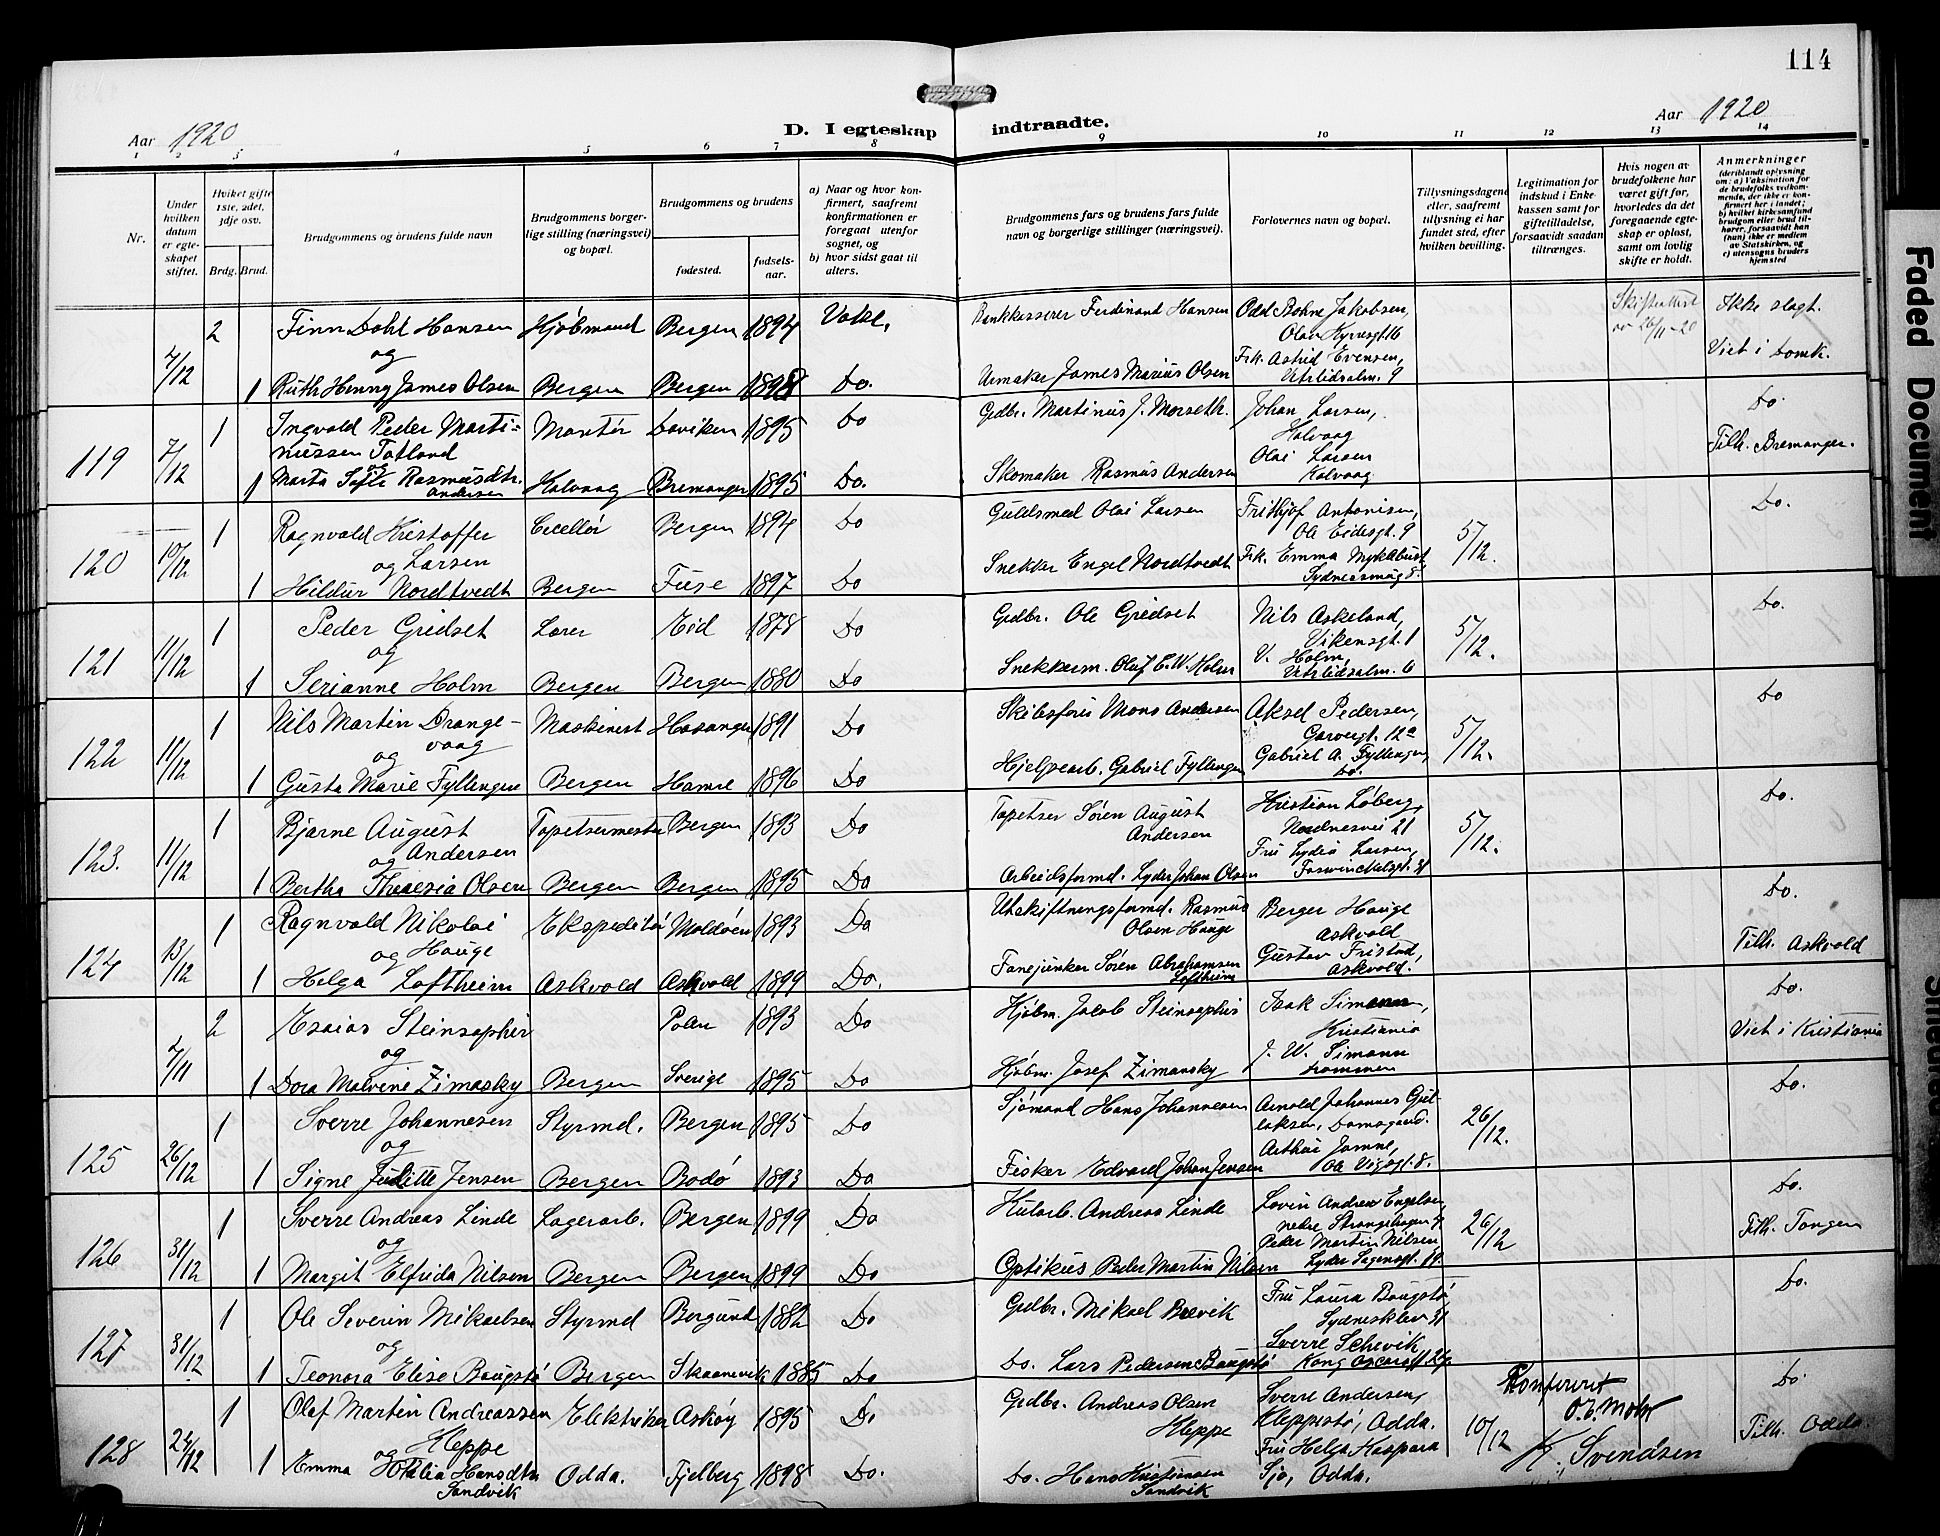 114
Aar 1920
D. I egteskap indtraadte.
Aar 1920
1 2 3 4 5 6 7 8 9 10 11 12 13 14
Nr.
Under hvilken datum er egteskapet stiftet.
Hviket gifte 1ste, 2det, 3dje osv.
Brdg. Brud.
Brudgommens og brudens fulde navn
Brudgommens borgerlige stilling (næringsvei) og bopæl.
Brudgommens og brudens
fødested.
fødselsaar.
a) Naar og hvor konfirmert, saafremt konfirmationen er foregaat utenfor sognet, og
b) hvor sidst gaat til alters.
Brudgommens fars og brudens fars fulde navn og borgerlige stillinger (næringsvei).
Forlovernes navn og bopæl.
Tillysningsdagene eller, saafremt tillysning ei har fundet sted, efter hvilken bevilling.
Legitimation for indskud i Enkekassen samt for giftetilladelse, forsaavidt saadan tiltrænges.
Hvis nogen av brudefolkene har været gift før, hvorledes da det foregaaende egteskap er opløst, samt om lovlig skifte er holdt.
Anmerkninger
(deriblandt oplysning om: a) Vaksination for de brudefolks vedkommende, der ikke er konfirmert her i landet; b) hvilket kirkesamfund brudgom eller brud tilhører, forsaavidt han (hun) ikke er medlem av Statskirken, og c) utensogns bruders hjemsted
7/12 2 Finn Dahl Hansen Kjøbmand Bergen 1894 Vake. Bankkasserer Ferdinand Hansen Odd Bohne Jakobsen, Olav Kyrresgt. 16 Skifteattest av 26/11-20 Ikke slegt.
og Frk. Astrid Evensen, Viet i Domk.
1 Ruth Henny James Olsen Bergen Bergen 1898 Do. Urmaker James Marius Olsen Vetrlidsalm. 9
119 7/12 1 Ingvald Peder Martinussen Tatland Montør Daviken 1895 Do Grdbr. Martinus J. Morseth. Johan Larsen, Kalvaag Do.
og Olai Larsen Tilh. Bremanger.
1 Marta Sofie Rasmusdtr. Andersen Kalvaag Bremanger 1895 Do. Skomaker Rasmus Andersen Kalvaag
120 10/12 1 Ragnvald Kristoffer Larsen Cicellør Bergen 1894 Do Guldsmed Olai Larsen Frithjof Antonisen, Ole Eidesgt. 9 5/12. Do.
og Frk. Emma Myklebust
1 Hildur Nordtvedt Bergen Fuse 1897 Do Snekker Engel Nordtvedt Sydnessmug 8.
121 11/12 1 Peder Gridset Lærer Eid 1878 Do Grdbr. Ole Gridset Nils Askeland, Vikensgt. 1 5/12. Do.
og V. Holm,
1 Serianne Holm Bergen Bergen 1880 Do Snekkerm. Olaf C. W. Holm Vetrlidsalm. 6
122 11/12 1 Nils Martin Drangevaag Maskinist Hosanger 1891 Do Skibsføre Mons Andersen Aksel Pedersen, Garvergt. 12a 5/12. Do
og Gabriel A. Fyllingen,
1 Gusta Marie Fyllingen Bergen Hamre 1896 Do Hjelpearb. Gabriel Fyllingen do.
123. 11/12 1 Bjarne August Andersen Tapetsermester Bergen 1893 Do Tapetser Søren August Andersen Kristian Løberg, Nordnesvei 21 5/12. Do.
og Fru Lydia Larsen,
1 Bertha Theresia Olsen Bergen Bergen 1895 Do Arbeidsformd. Lyder Johan Olsen
124 13/12 1 Ragnvald Nikolai Hauge Ekspeditør Moldøen 1893 Do Utskiftningsformd. Rasmus Olsen Hauge Berger Hauge Askvold Do.
og Gustav Fristad, Tilh. Askvold
1 Helga Loftheim Askvold Askvold 1899 Do. Fanejunker Søren Abrahamsen Loftheim Askvold.
2/11 2 Esaias Steinsaphir Polen 1893 Do Kjøbm. Jacob Steinsaphir Isak Simann, Kristiania Do.
og J. W. Simann Viet i Kristiania
1 Dora Malvine Zimansky Bergen Sverige 1895 Do Kjøbm. Josef Zimansky Drammen
125 26/12 1 Sverre Johannesen Styrmd. Bergen 1895 Do Sjømand Hans Johannesen Arnold Johannes Damsgaard. 26/12. Do.
og Arthur Jamne,
1 Signe Juditte Jensen Bergen Bodø 1893 Do Fisker Edvard Johan Jensen Ole Vigsgt. 8.
126 31/12 1 Sverre Andreas Linde Lagerarb. Bergen 1899 Do Hularb. Andreas Linde Lovin Andrea Engelsen nedre Strangehagen 26/12 Do.
og Peder Martin Nilsen Tilh. Tangen
1 Margit Elfrida Nilsen Bergen Bergen 1899 Do Optikus Peder Martin Nilsen Lyder Sagensgt. 19.
127 31/12 1 Ole Severin Mikaelsen Styrmd Borgund 1882 Do Grdbr. Mikael Brevik Fru Laura Baugstø Sydneskleven 31 Do.
og Sverre Schevik
1 Teonora Elise Baugstø Bergen Skaanevik 1885 Do Do. Lars Pedersen Baugstø Kong Oscarsgt 26
128 24/12 1 Olaf Martin Andreassen Kleppe Elektriker Askøy 1895 Do Grdbr. Andreas Olsen Kleppe Sverre Andersen, Kleppestø, Odda. 10/12 Do.
og Fru Helga Kaspara Tilh. Odda.
1 Emma Otalia Hansdtr. Sandvik Odda. Fjelberg 1898 Do. Do. Hans Kristiansen Sandvik Sjo, Odda.
Konfereret
O. E. Mohr
K. Svendsen
Faded Document